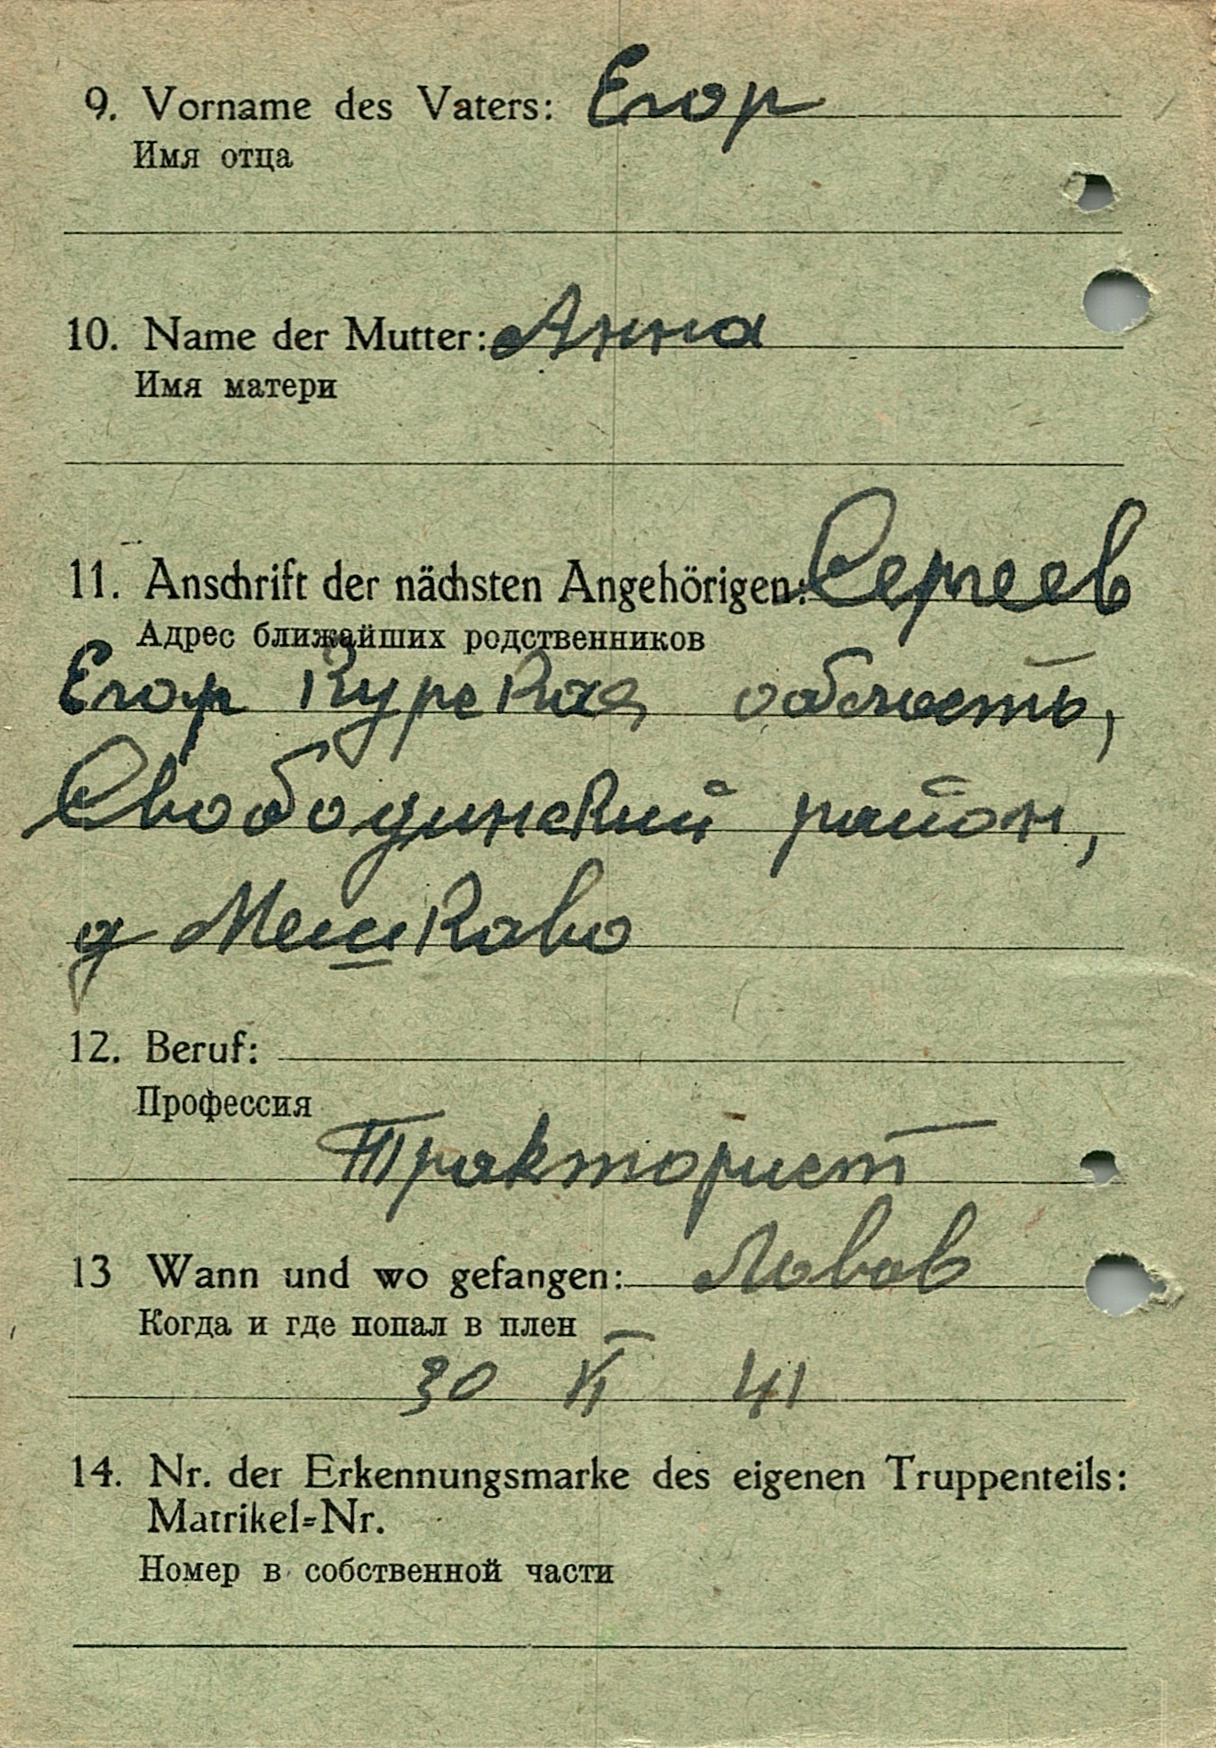 9. Vorname des Vaters: Егор
Имя отца
10. Name der Mutter: Анна
Имя матери
11. Anschrift der nächsten Angehörigen: Сергеев
Адрес ближайших родственников
Егор Курская область,
Свободинский район,
д Мешково
12. Beruf:
Профессия
Тракторист
13 Wann und wo gefangen: Львов
Когда и где попал в плен
30 VI 41
14. Nr. der Erkennungsmarke des eigenen Truppenteils:
Matrikel=Nr.
Номер в собственной части